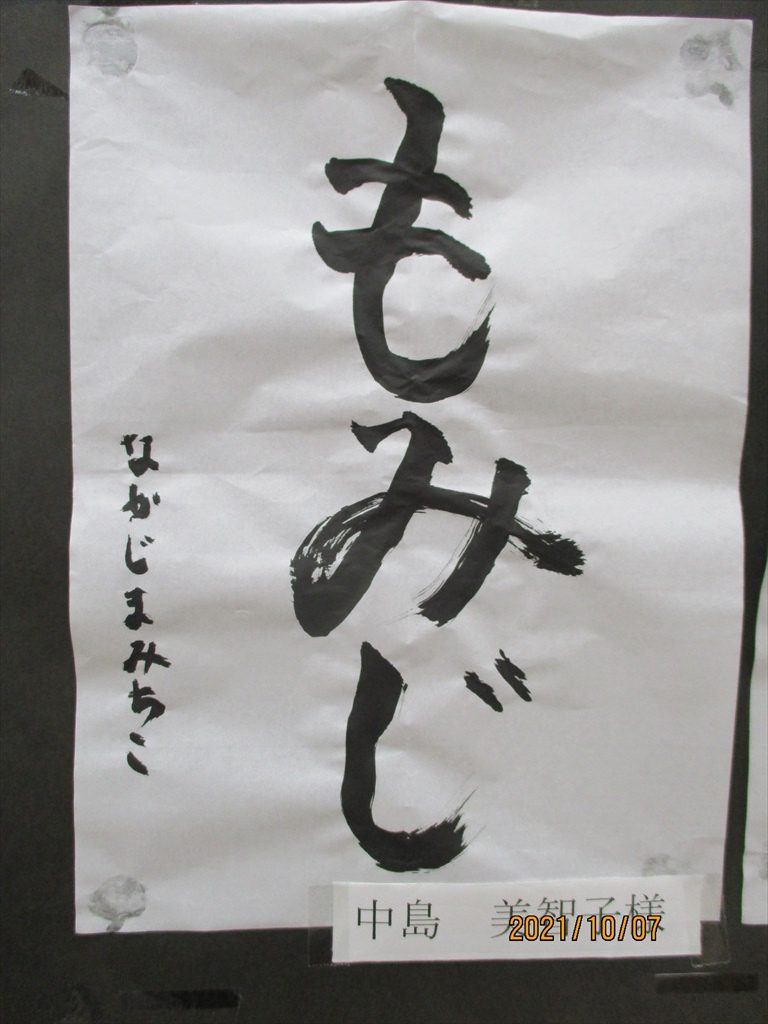 もみじ
なかじまみちこ
中島 美智子様
2021/10/07